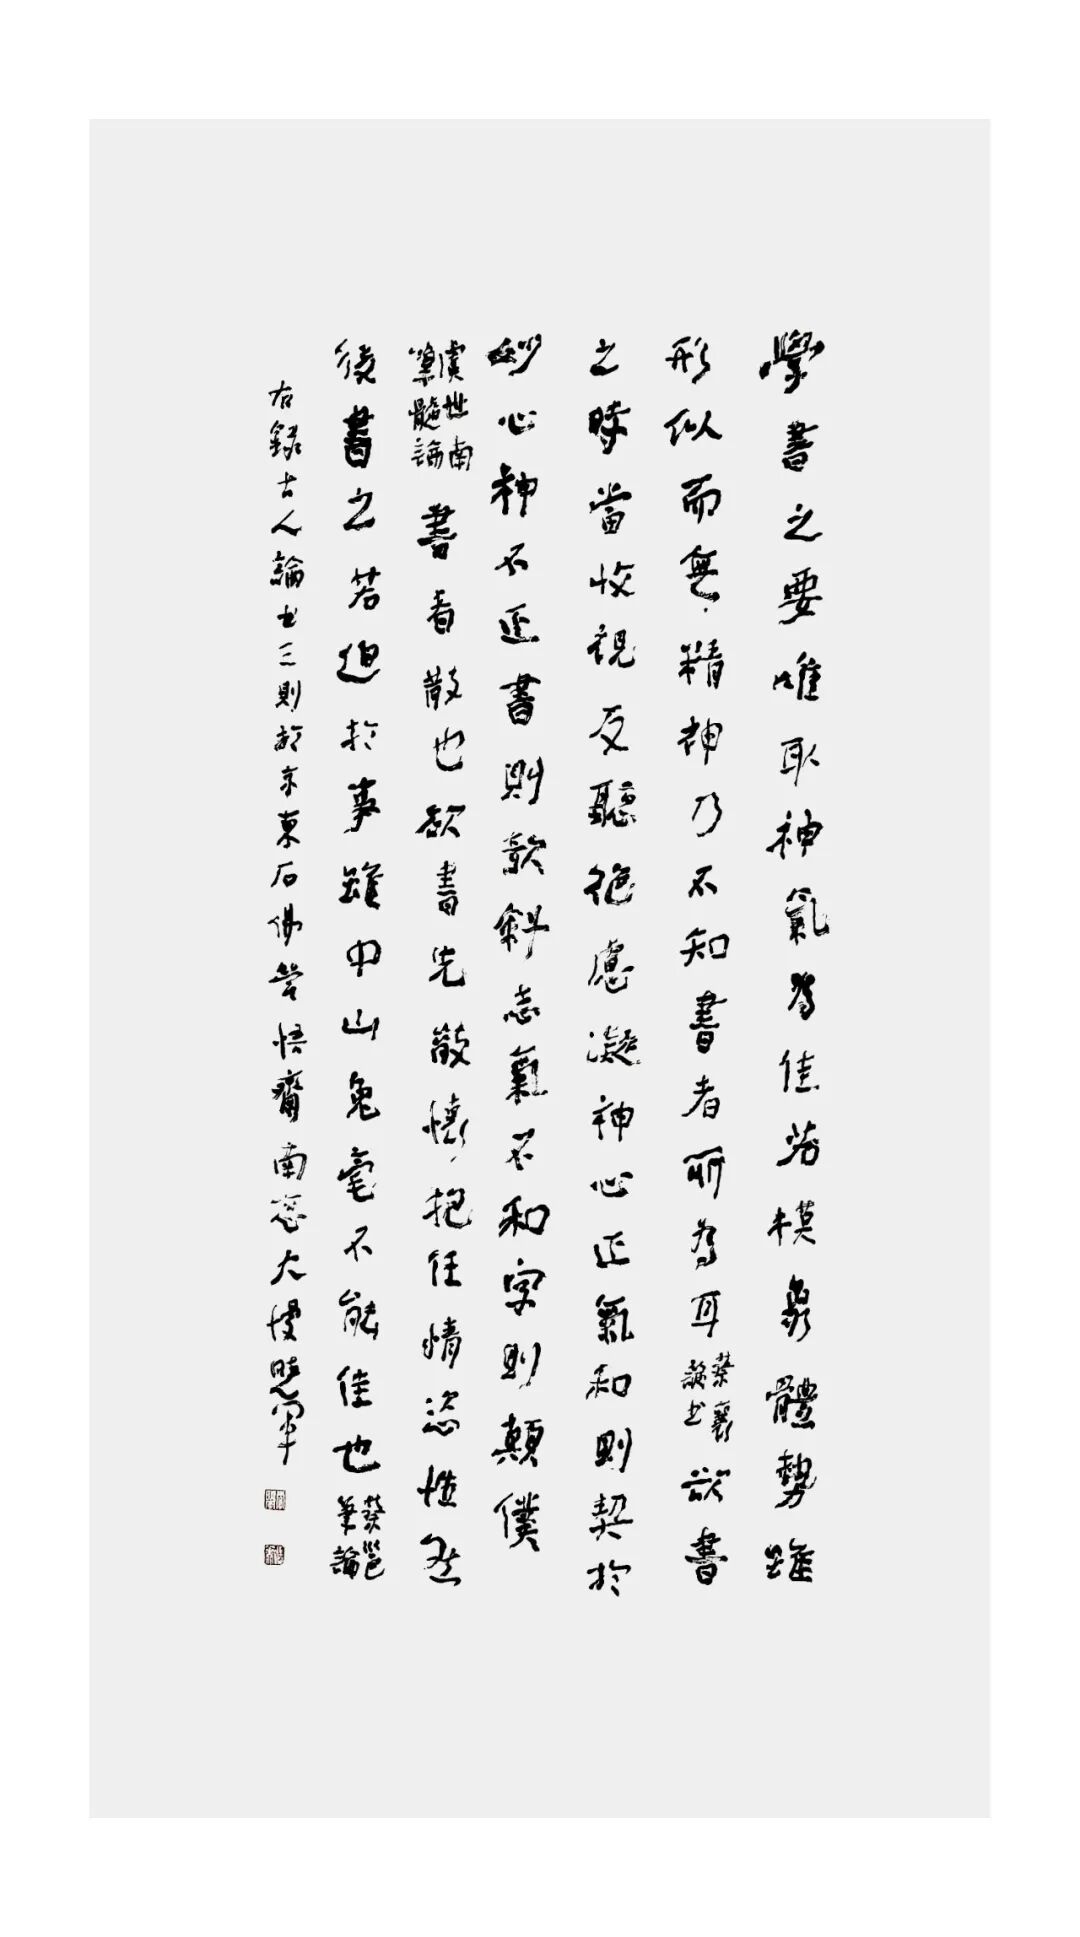 學書之要唯取神氣為佳若模象體勢雖
形似而無精神乃不知書者所為耳 蔡襄論書 欲書
之時當收視反聽絕慮凝神心正氣和則契於
妙心神不正書則欹斜志氣不和字則顛仆
虞世南筆髓論 書者散也欲書先散懷抱任情恣性然
後書之若迫於事雖中山兔毫不能佳也 蔡邕筆論
右錄古人論書三則於京東石佛營悟齋南窓大慢